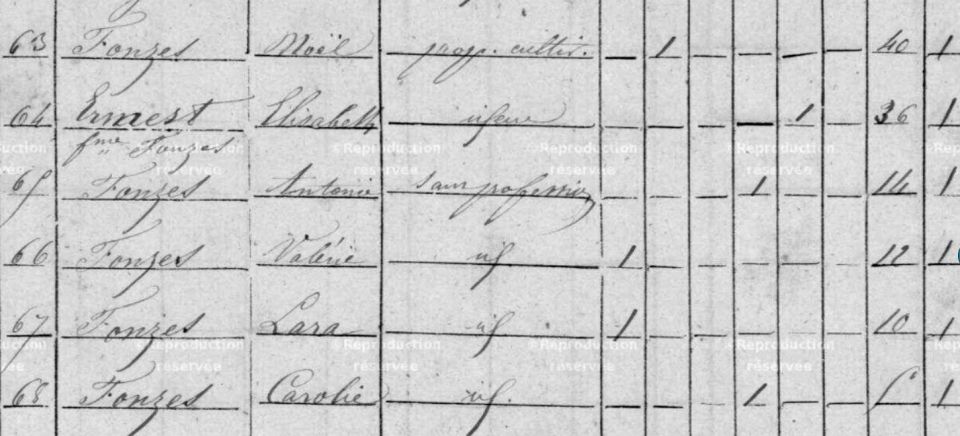 63 Fonzes Noël prop. cultiv. — 1 — — — — 40 1
64 Ernest Elisabeth — — — — 1 — 36 1
fme Fonzes
65 Fonzes Antonie sans profession — — — 1 — — 14 1
66 Fonzes Valérie id 1 — — — — — 12 1
67 Fonzes Lara id 1 — — — — — 10 1
68 Fonzes Carolie id. — — — 1 — — 5 1
©Reproduction réservée